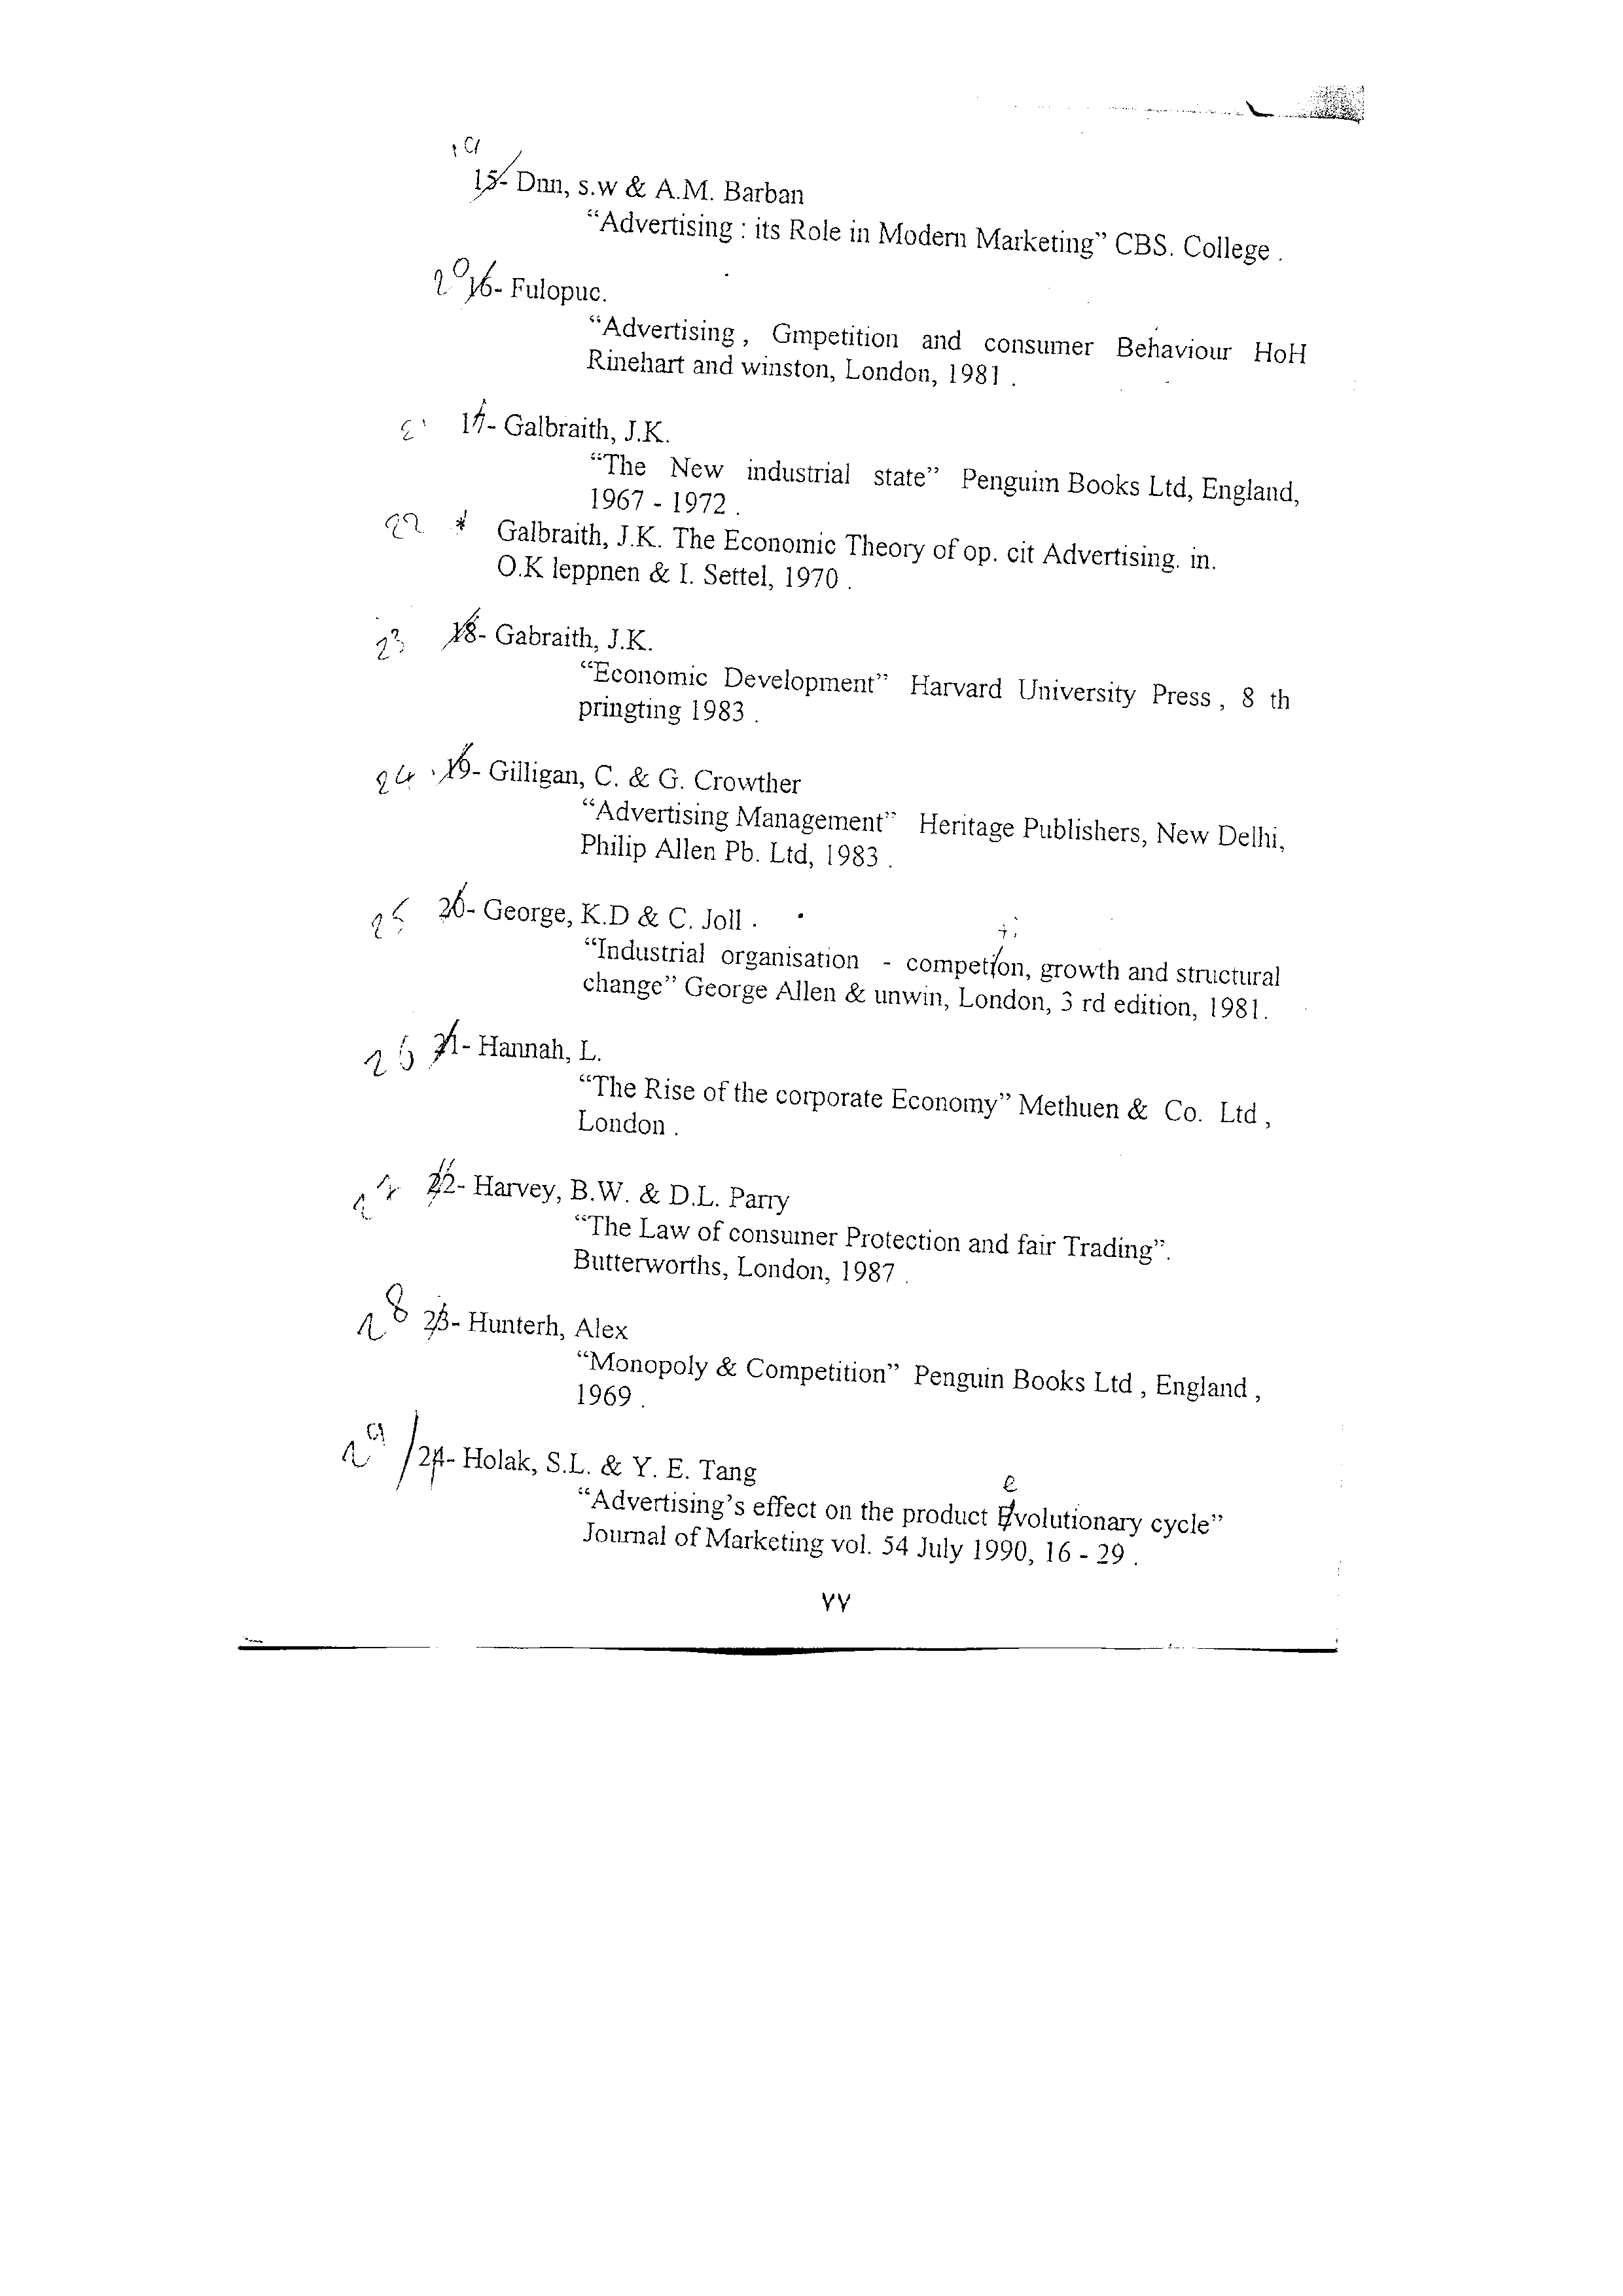 19
15- Dnn, s.w & A.M. Barban
“Advertising : its Role in Modern Marketing” CBS. College .
20 16- Fulopuc.
“Advertising , Gmpetition and consumer Behaviour HoH
Rinehart and winston, London, 1981 .
21 17- Galbraith, J.K.
“The New industrial state” Penguim Books Ltd, England,
1967 - 1972 .
22 * Galbraith, J.K. The Economic Theory of op. cit Advertising. in.
O.K leppnen & I. Settel, 1970 .
23 18- Gabraith, J.K.
“Economic Development” Harvard University Press , 8 th
pringting 1983 .
24 19- Gilligan, C. & G. Crowther
“Advertising Management” Heritage Publishers, New Delhi,
Philip Allen Pb. Ltd, 1983 .
25 20- George, K.D & C. Joll .
ti
“Industrial organisation - competion, growth and structural
change” George Allen & unwin, London, 3 rd edition, 1981.
26 21- Hannah, L.
“The Rise of the corporate Economy” Methuen & Co. Ltd ,
London .
27 22- Harvey, B.W. & D.L. Parry
“The Law of consumer Protection and fair Trading”.
Butterworths, London, 1987 .
28 23- Hunterh, Alex
“Monopoly & Competition” Penguin Books Ltd , England ,
1969 .
29 /24- Holak, S.L. & Y. E. Tang
e
“Advertising’s effect on the product Evolutionary cycle”
Journal of Marketing vol. 54 July 1990, 16 - 29 .
٧٧